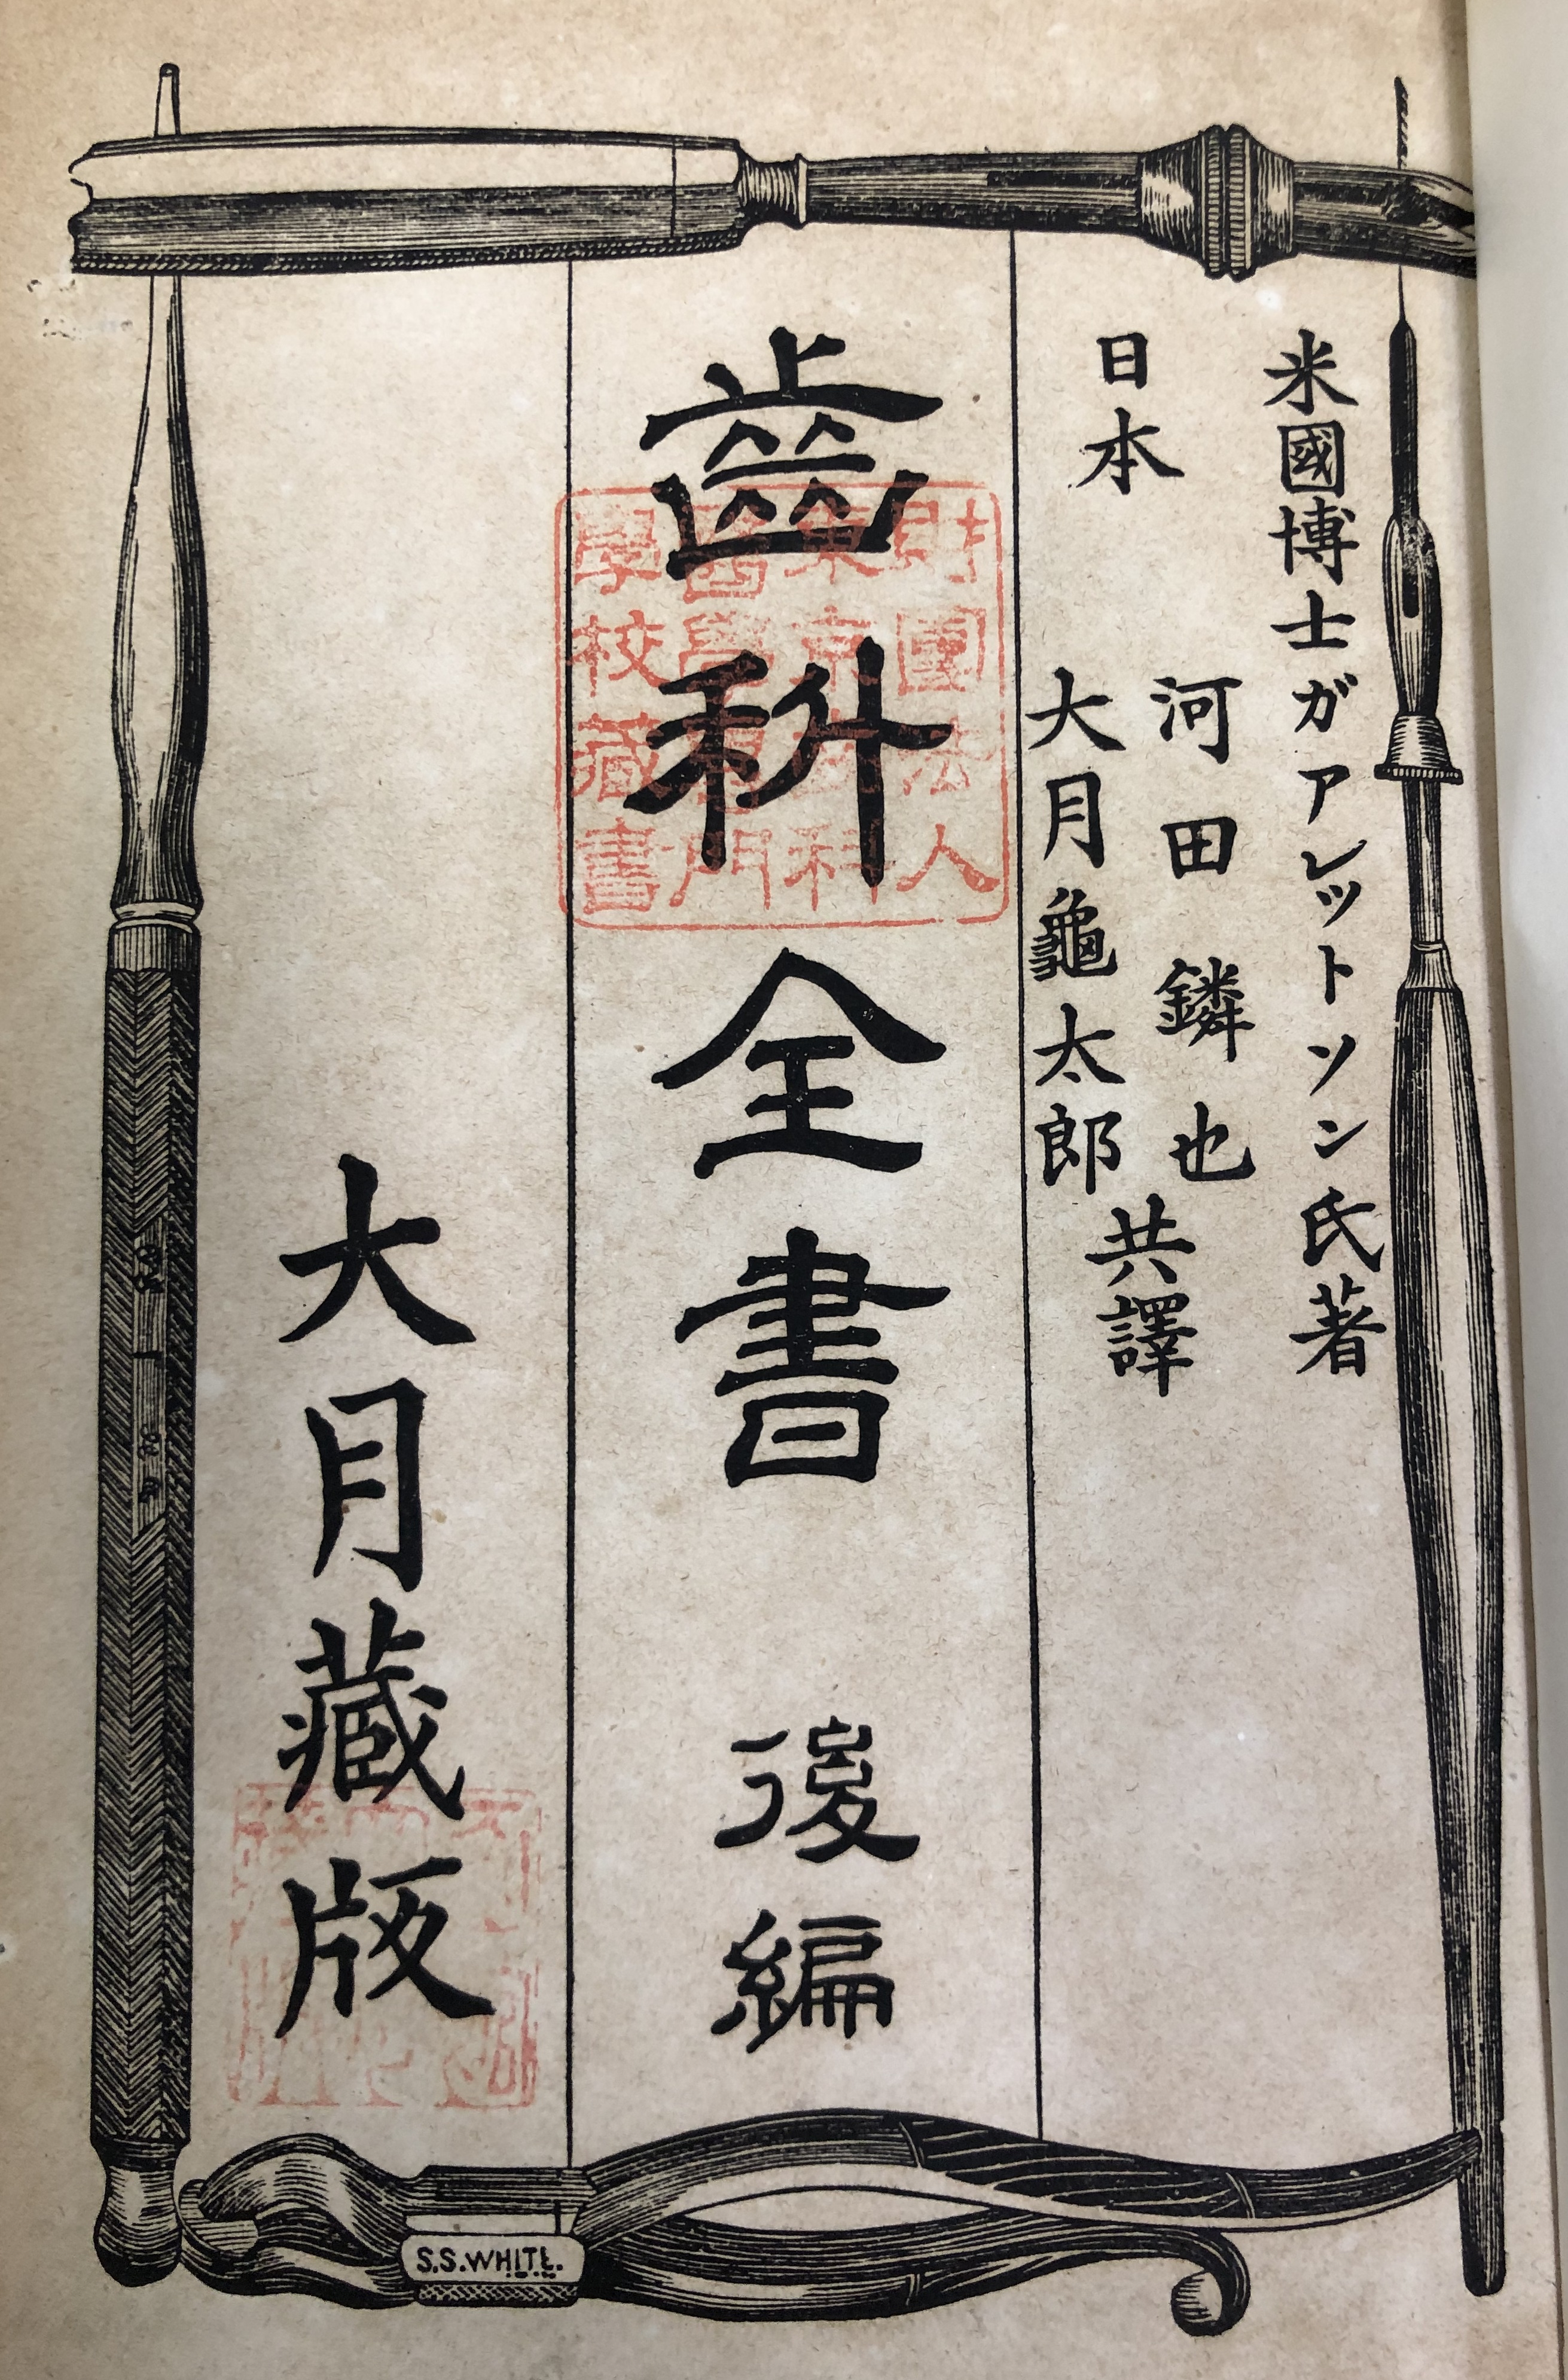 米國博士ガアレットソン氏著
日本
河田鏻也
大月龜太郎
共譯
齒科全書 後編
大月藏版
財團法人
東京齒科
醫學專門
學校藏書
S.S.WHITE.